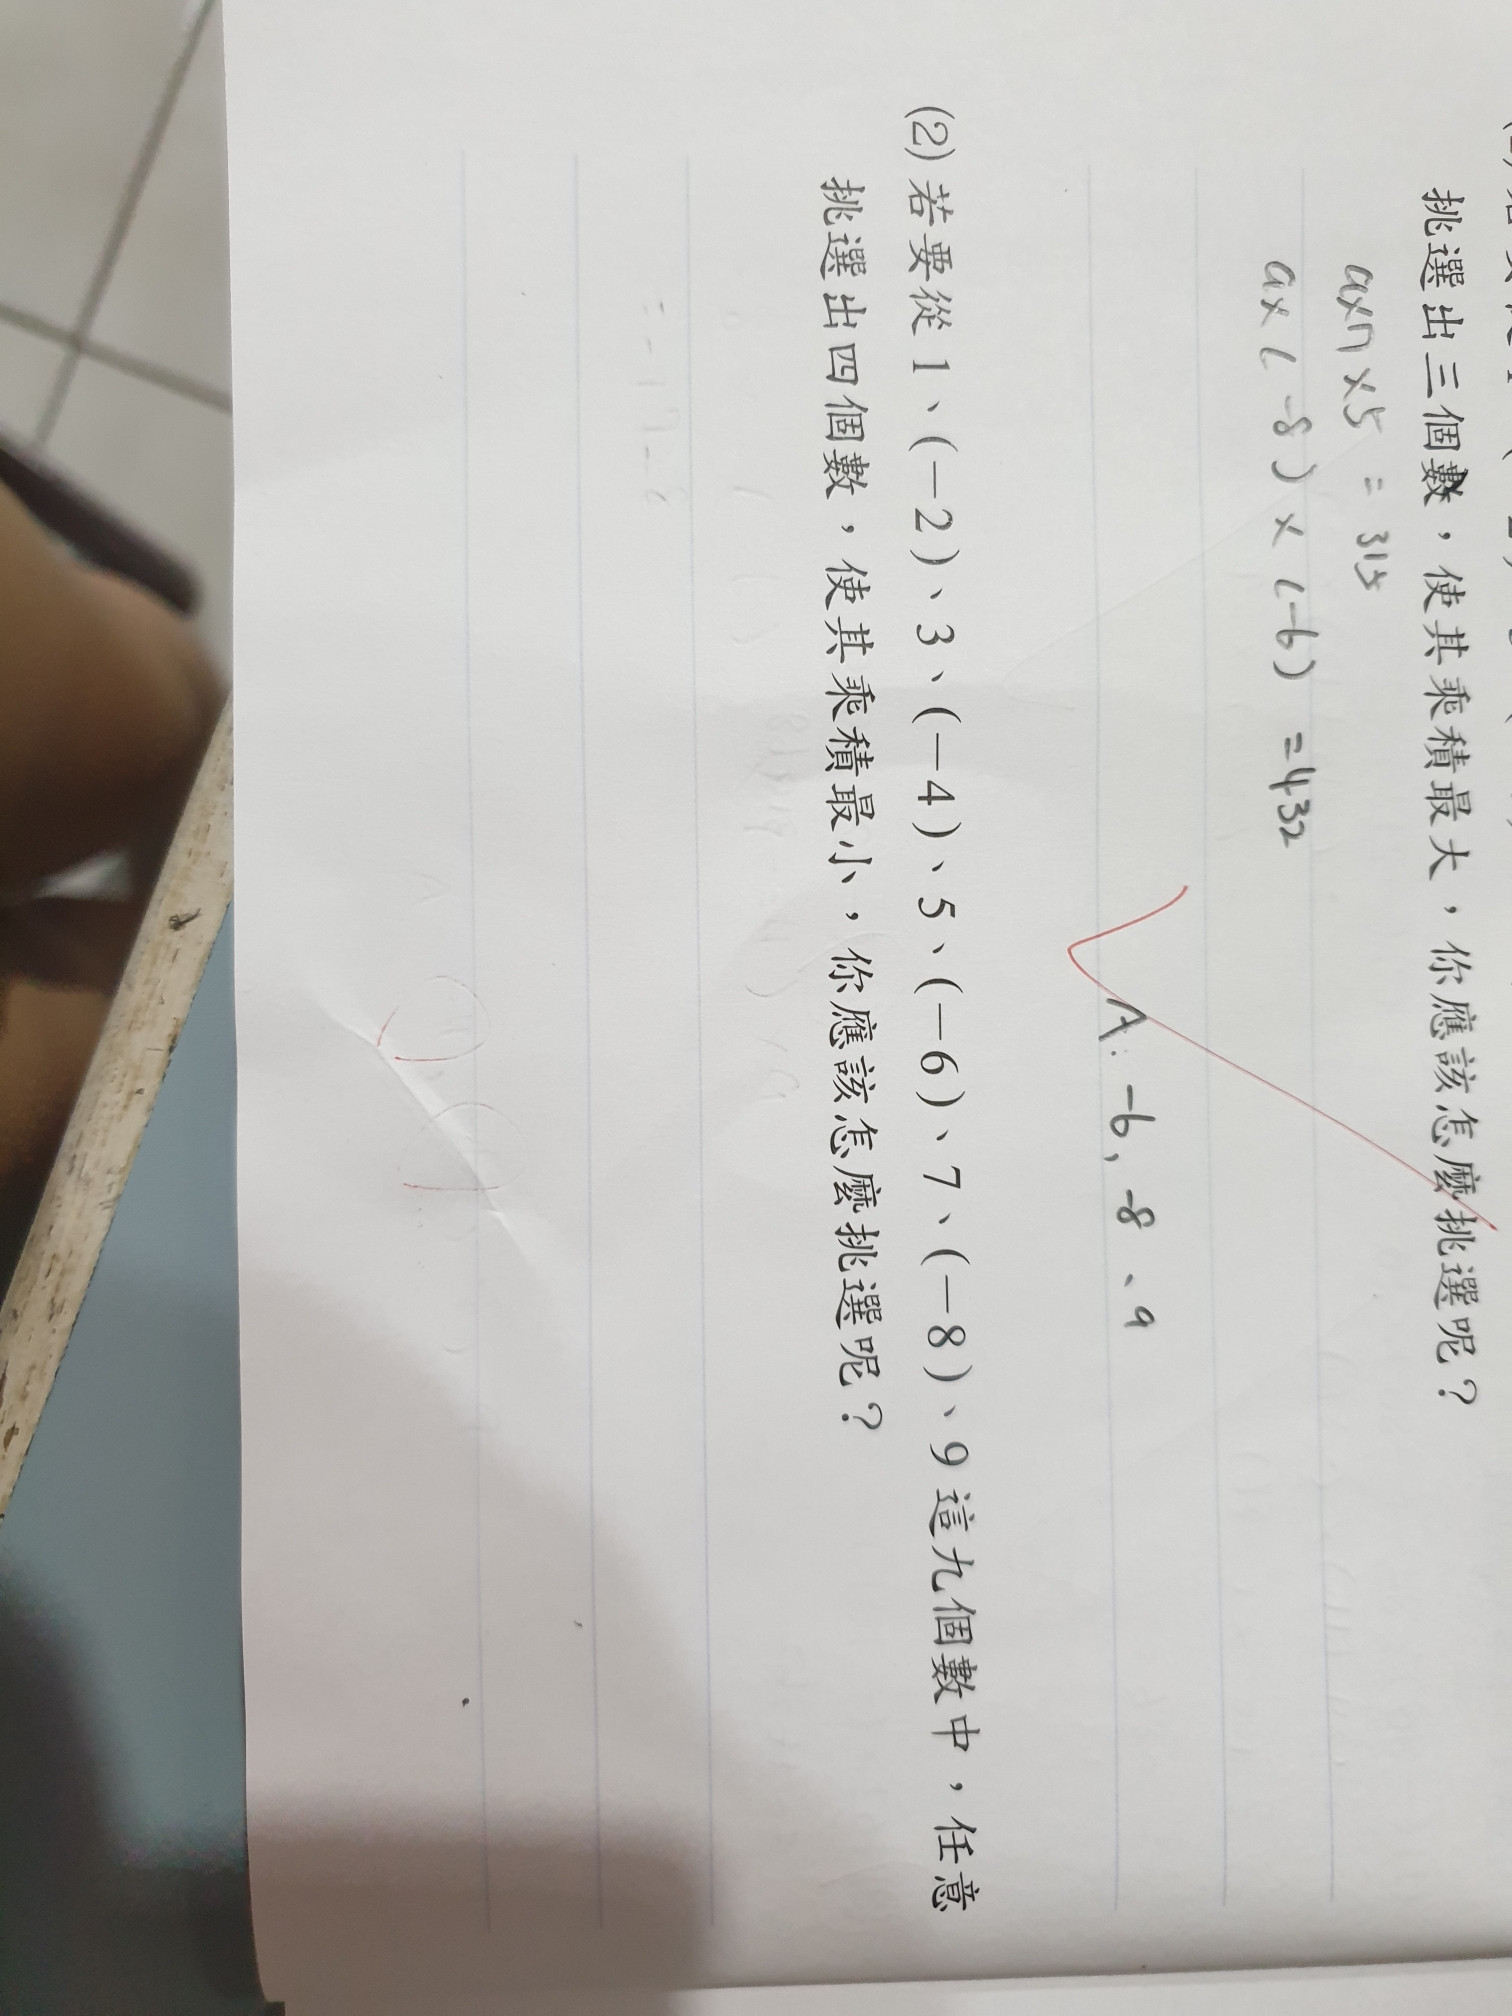 挑選出三個數，使其乘積最大，你應該怎麼挑選呢？
9×7×5 = 315
9×(-8)×(-6) = 432
A: -6、-8、9
(2) 若要從 1、(－2)、3、(－4)、5、(－6)、7、(－8)、9 這九個數中，任意
挑選出四個數，使其乘積最小，你應該怎麼挑選呢？